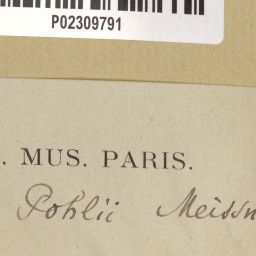 P02309791
. MUS. PARIS.
Pohlii Meissn